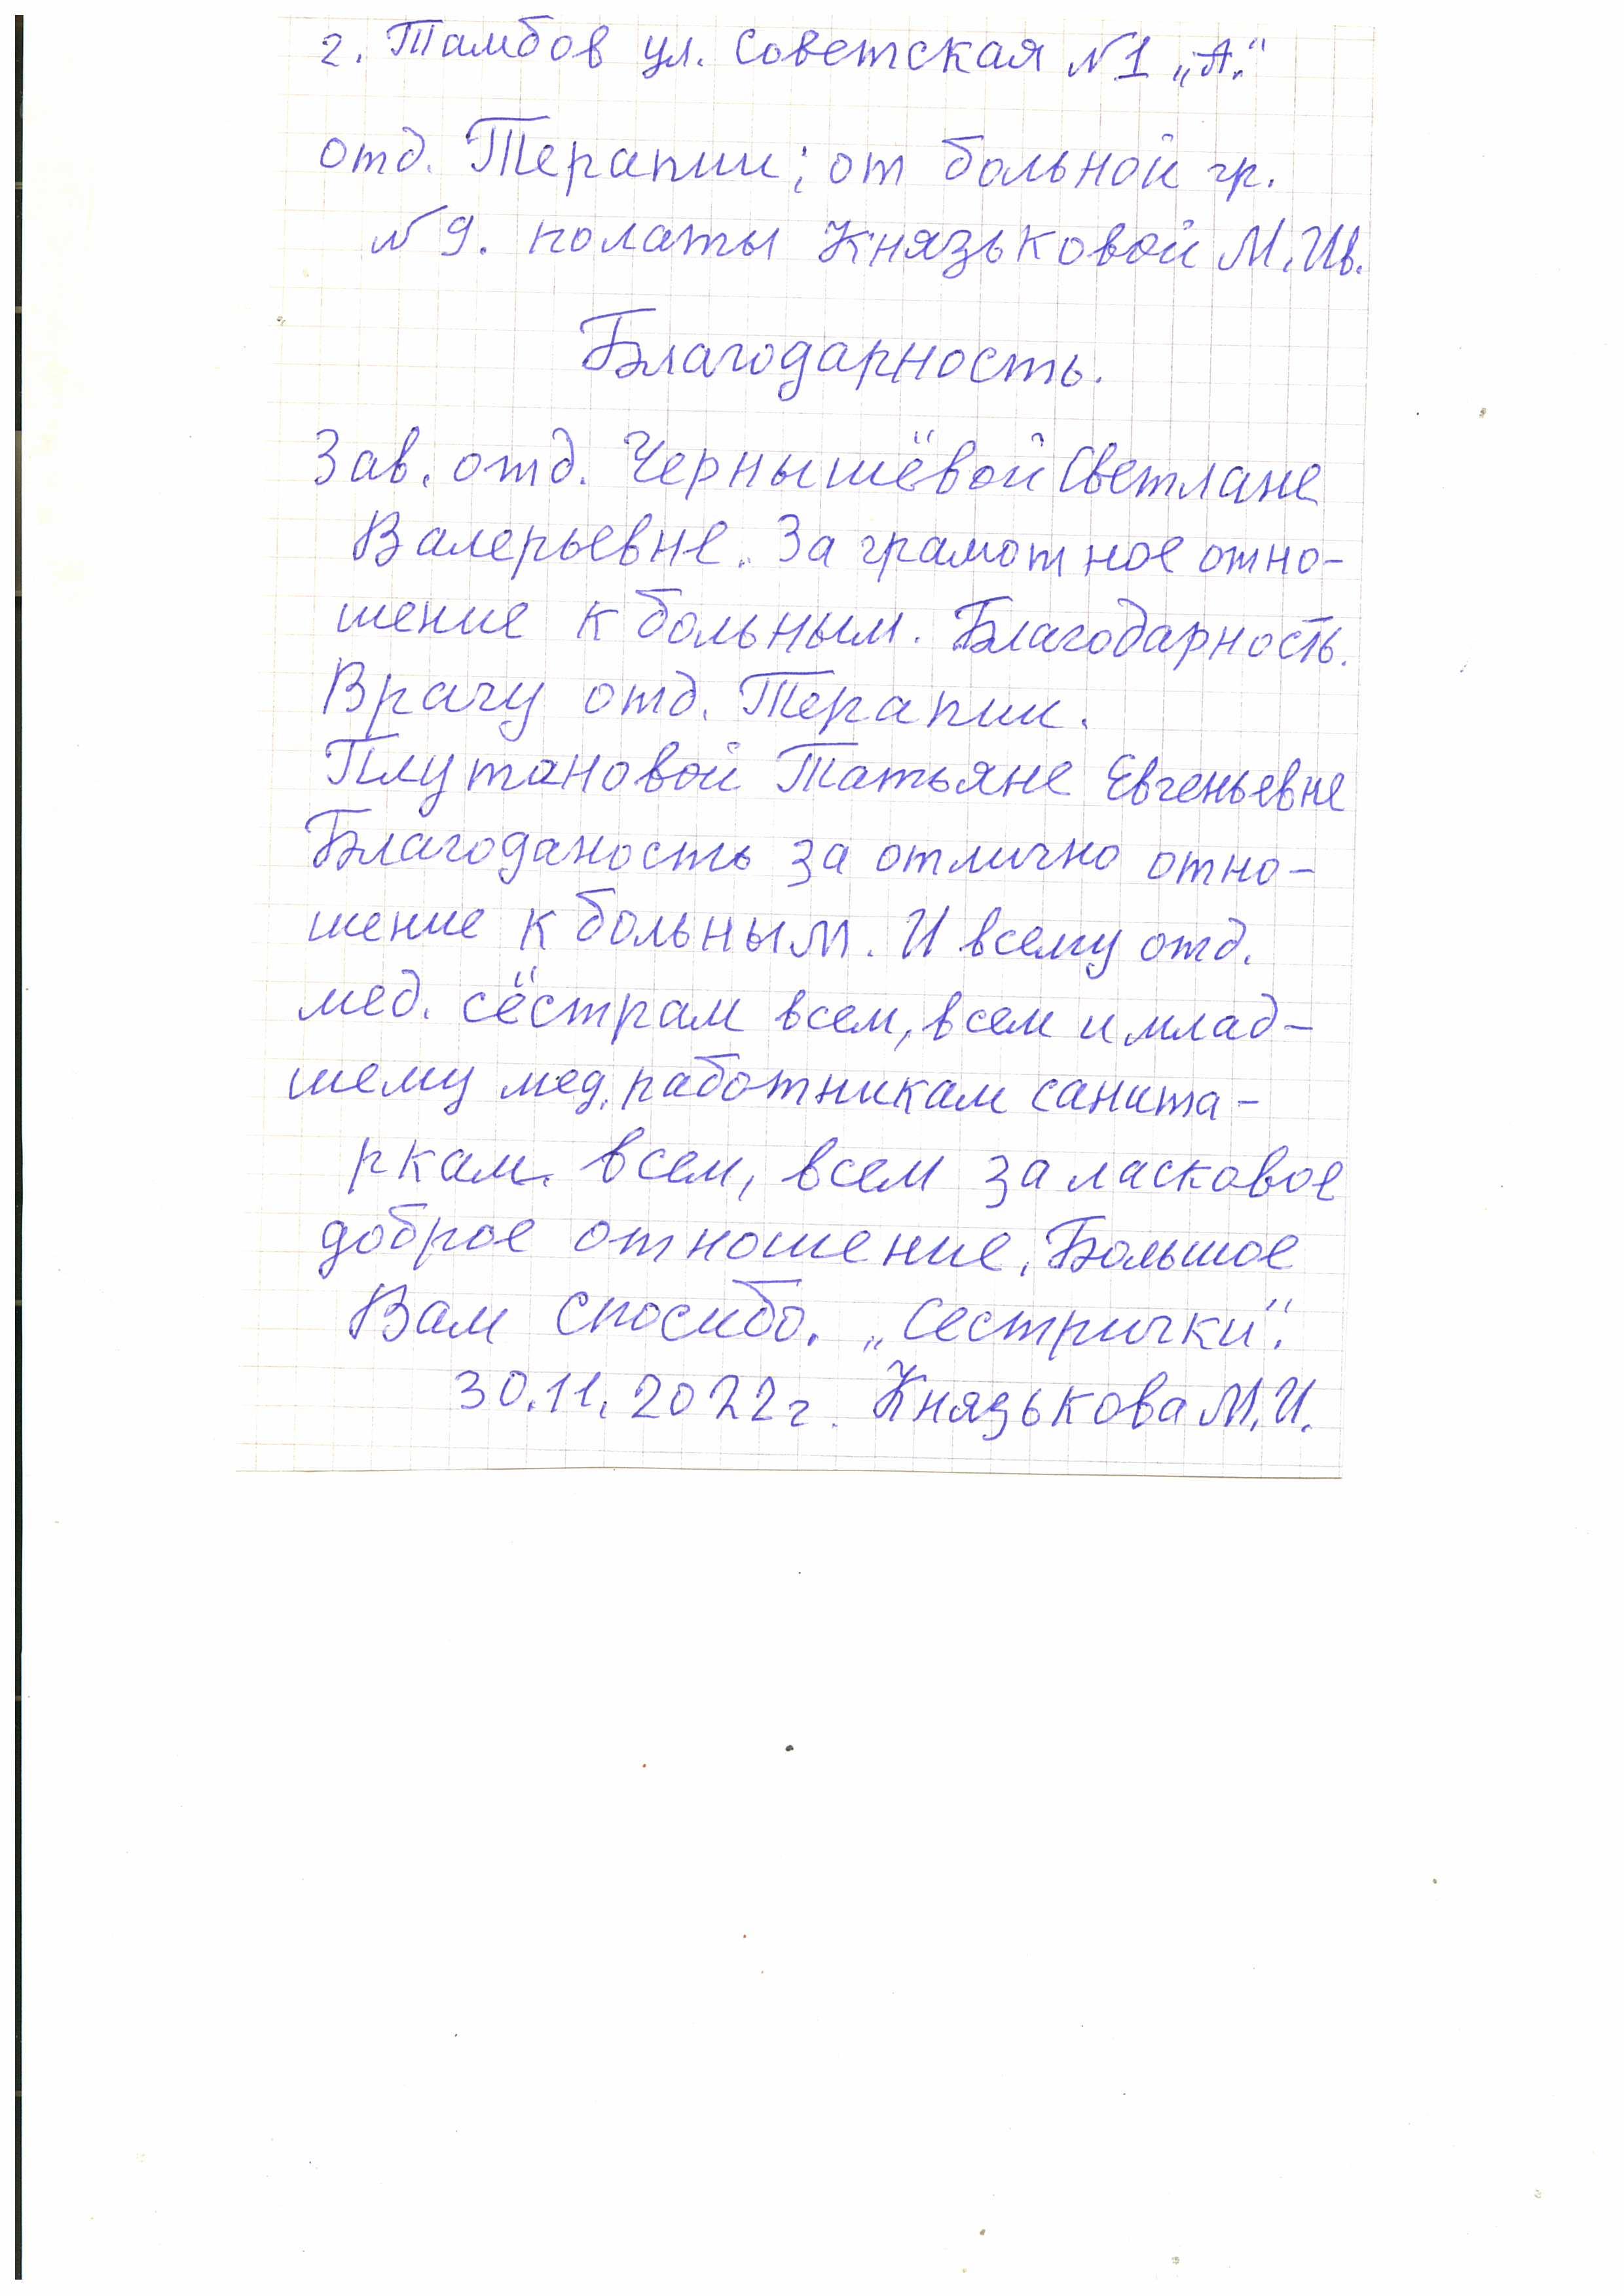 г. Тамбов ул. Советская №1 „А."
отд. Терапии; от больной гр.
№ 9. полаты Князьковой М. Ив.
Благодарность.
Зав. отд. Чернышёвой Светлане
Валерьевне. За грамотное отно-
шение к больным. Благодарность.
Врачу отд. Терапии.
Плутановой Татьяне Евгеньевне
Благоданость за отлично отно-
шение к больным. И всему отд.
мед. сёстрам всем, всем и млад-
шему мед. работникам санита-
ркам. всем, всем за ласковое
доброе отношение. Большое
Вам спосибо. „Сестрички".
30.11.2022г. Князькова М.И.